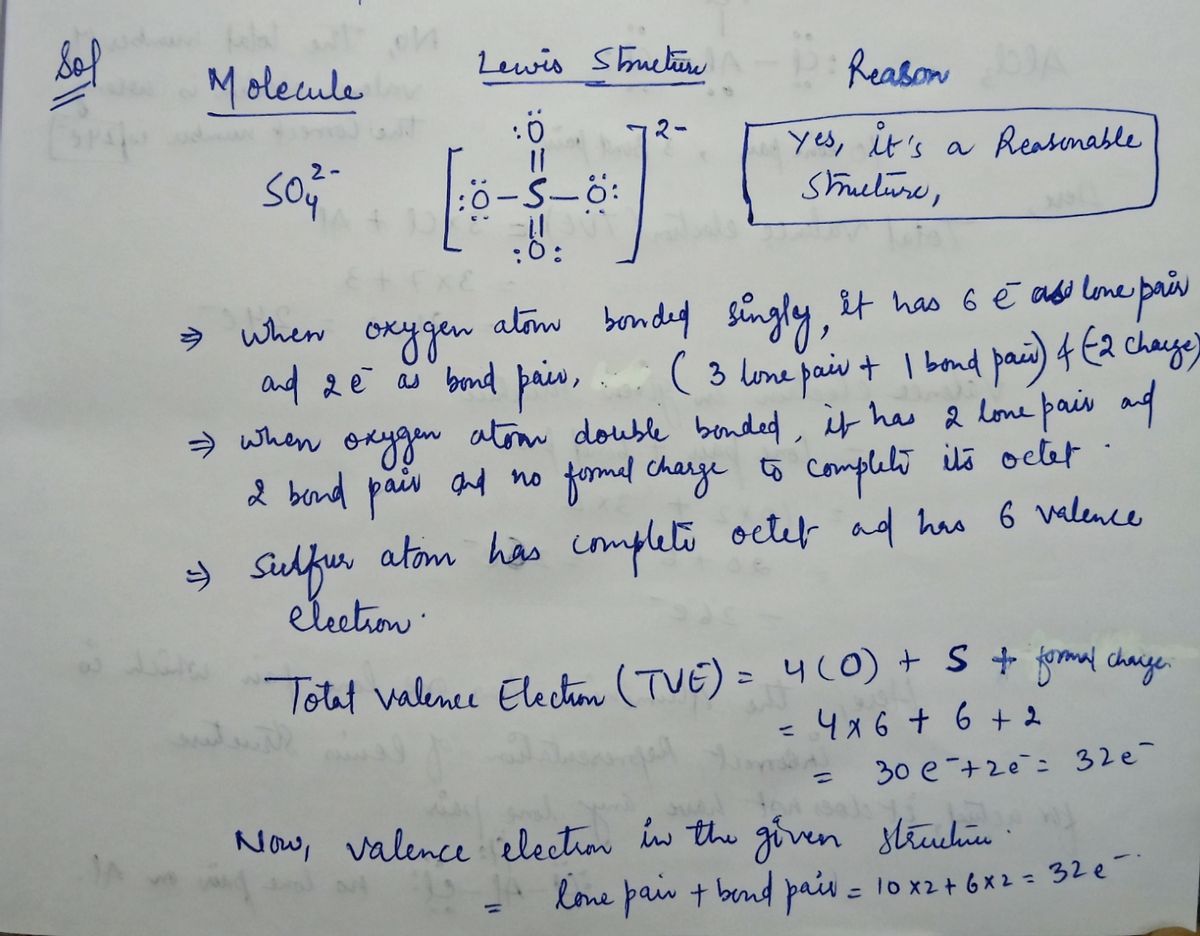 Sol
Molecule Lewis Structure Reason
SO₄²⁻
:Ö
||
[:Ö–S–Ö:]²⁻
||
:Ö:
Yes, it's a Reasonable
Structure,
⇒ when oxygen atom bonded singly, it has 6 e⁻ as lone pair
and 2 e⁻ as bond pair, (3 lone pair + 1 bond pair) & (-2 charge)
⇒ when oxygen atom double bonded, it has 2 lone pair and
2 bond pair and no formal charge to complete its octet.
⇒ Sulfur atom has complete octet ad has 6 valence
electron.
Total valence Electron (TVE) = 4(O) + S + formal charge.
= 4 x 6 + 6 + 2
= 30 e⁻ + 2e⁻ = 32e⁻
Now, valence electron in the given structure.
= lone pair + bond pair = 10 x 2 + 6 x 2 = 32 e⁻.